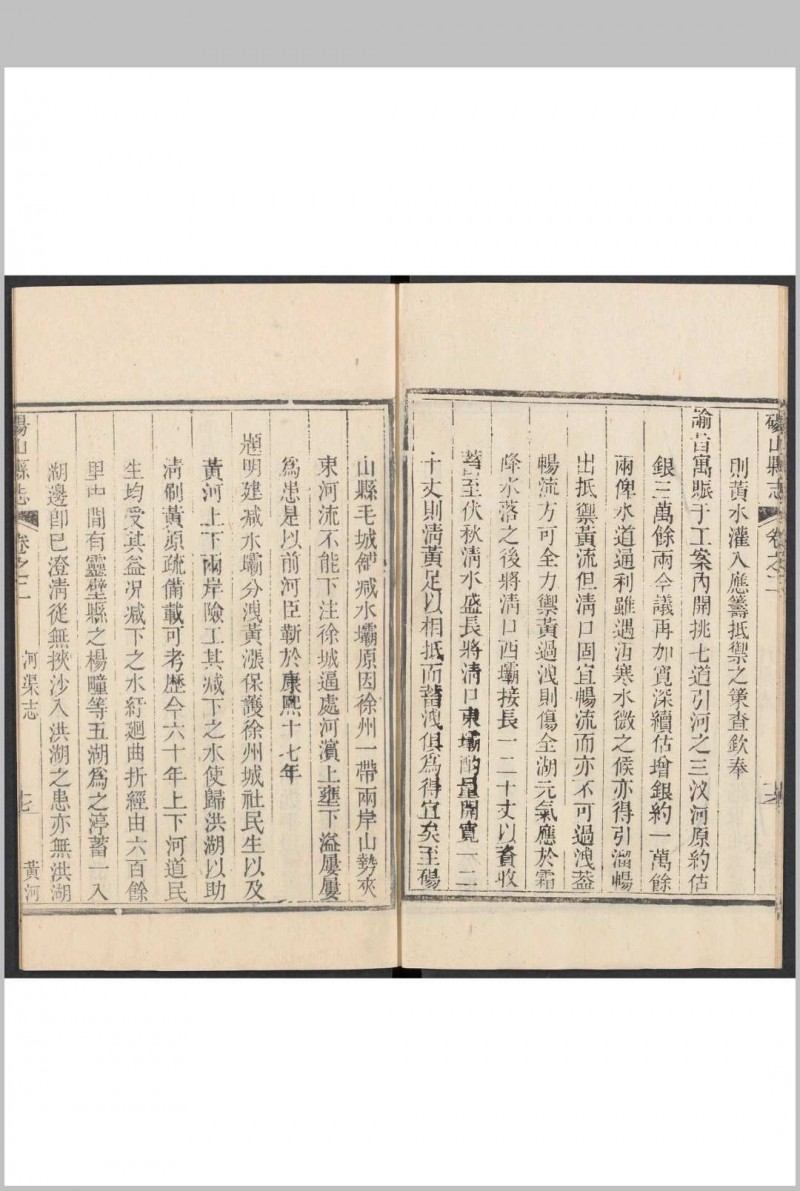 碭山縣志 卷之二
則黃水灌入應籌抵禦之策查欽奉
諭旨寓賑于工案內開挑七道引河之三汊河原約估
銀三萬餘兩今議再加寬深續估增銀約一萬餘
兩俾水道通利雖遇沍寒水微之候亦得引溜暢
出抵禦黃流但清口固宜暢流而亦不可過洩蓋
暢流方可全力禦黃過洩則傷全湖元氣應於霜
降水落之後將清口西壩接長一二十丈以資收
蓄至伏秋清水盛長將清口東壩酌量開寬一二
十丈則清黃足以相抵而蓄洩俱為得宜矣至碭
山縣毛城舖减水壩原因徐州一帶兩岸山勢夾
束河流不能下注徐城逼處河濱上壅下溢屢屢
為患是以前河臣靳於康熙十七年
題明建减水壩分洩黃漲保護徐州城社民生以及
黃河上下兩岸險工其减下之水使歸洪湖以助
清刷黃原疏備載可考歷今六十年上下河道民
生均受其益况减下之水紆廻曲折經由六百餘
里中間有靈壁縣之楊疃等五湖為之渟蓄一入
湖邊即已澄清從無挾沙入洪湖之患亦無洪湖
碭山縣志 卷之二 河渠志 七 黃河